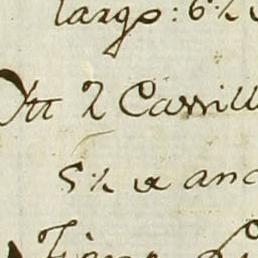 largo: 6½
Ott 2 Carrill
5½ a anc
Tiene